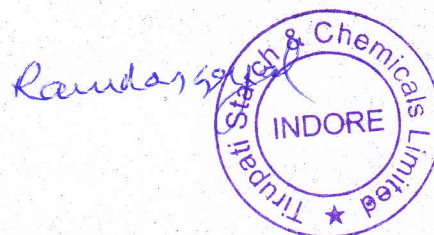 Ramdas Goyal
Tirupati Starch & Chemicals Limited
INDORE
★